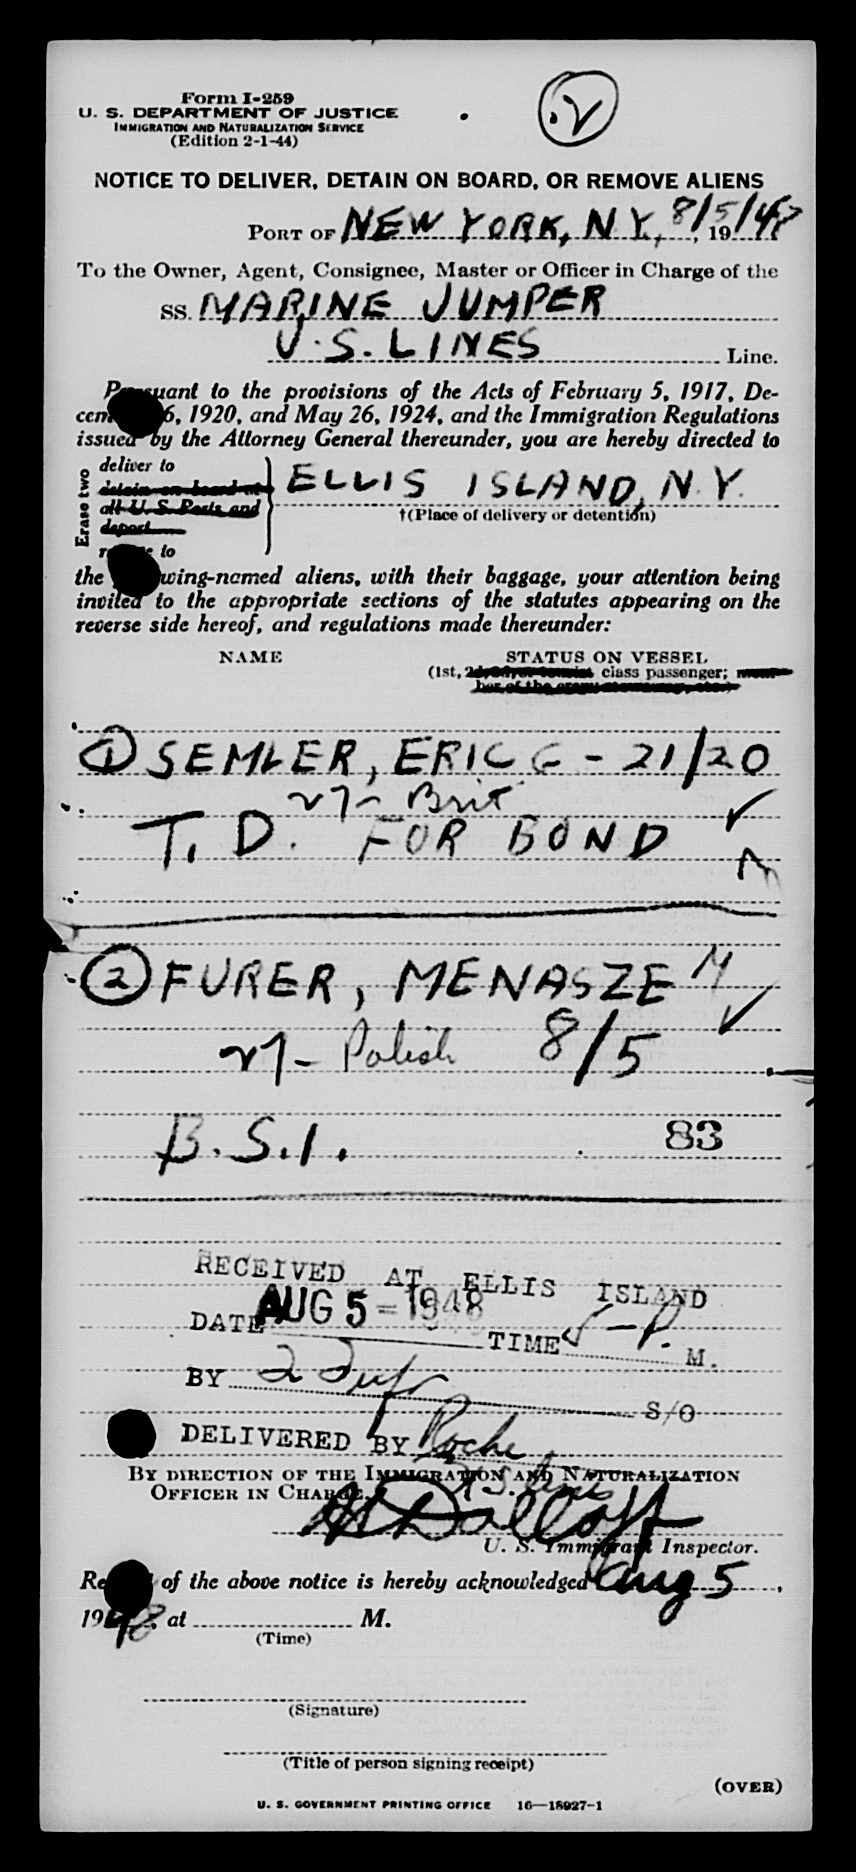 Form I-259
U. S. DEPARTMENT OF JUSTICE
IMMIGRATION AND NATURALIZATION SERVICE
(Edition 2-1-44)
NOTICE TO DELIVER, DETAIN ON BOARD, OR REMOVE ALIENS
PORT OF NEW YORK, N.Y., 8/5/48, 19
To the Owner, Agent, Consignee, Master or Officer in Charge of the
SS. MARINE JUMPER
U.S. LINES Line.
Pursuant to the provisions of the Acts of February 5, 1917, De-
cem 6, 1920, and May 26, 1924, and the Immigration Regulations
issued by the Attorney General thereunder, you are hereby directed to
Erase two
deliver to
detain on board at
all U. S. Ports and
deport
to
ELLIS ISLAND, N.Y.
†(Place of delivery or detention)
the wing-named aliens, with their baggage, your attention being
invited to the appropriate sections of the statutes appearing on the
reverse side hereof, and regulations made thereunder:
NAME STATUS ON VESSEL
(1st, class passenger;
① SEMLER, ERIC G - 21/20
Brit
T.D. FOR BOND ✓
② FURER, MENASZE M
Polish 8/5 ✓
B.S.I. 83
RECEIVED AT ELLIS ISLAND
DATE AUG 5 - 1948 TIME 5-P. M.
BY S/O
DELIVERED BY Roche
U.S. Lines
BY DIRECTION OF THE IMMIGRATION AND NATURALIZATION
OFFICER IN CHARGE.
U. S. Immigrant Inspector.
Re of the above notice is hereby acknowledged Aug 5,
1948, at M.
(Time)
(Signature)
(Title of person signing receipt)
(OVER)
U. S. GOVERNMENT PRINTING OFFICE 16—18927-1